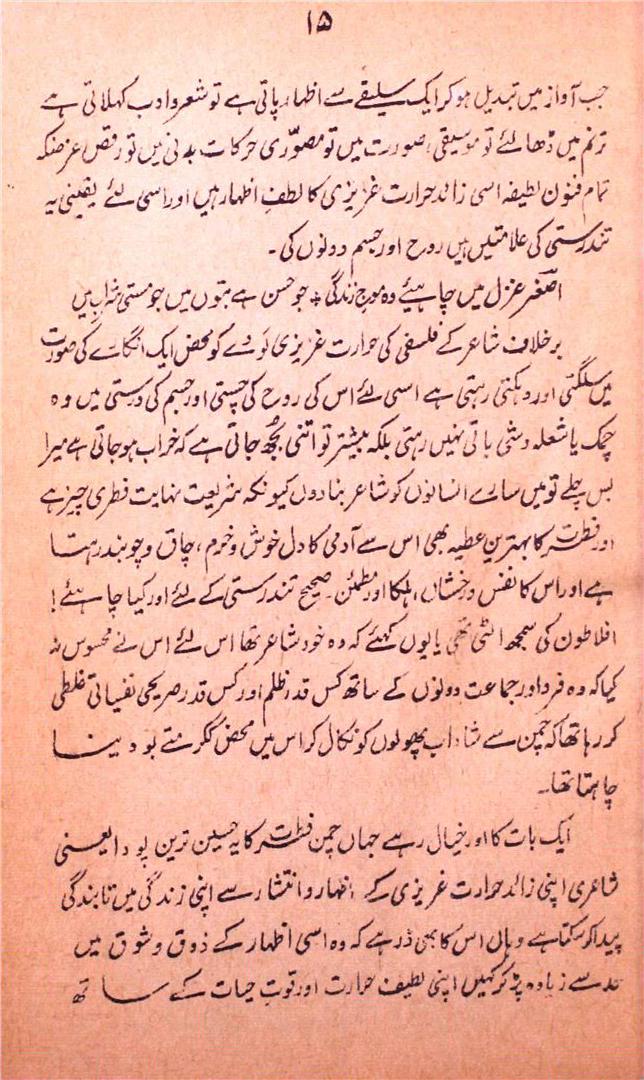 ۱۵
جب آواز میں تبدیل ہو کر ایک سلیقے سے اظہار پاتی ہے تو شعر و ادب کہلاتی ہے
ترنم میں ڈھالئے تو موسیقی، صورت میں تو مصوّری حرکات بدنی میں تو رقص غرضکہ
تمام فنون لطیفہ اسی زائد حرارت غریزی کا لطفِ اظہار ہیں اور اسی لئے یقینی یہ
تندرستی کی علامتیں ہیں روح اور جسم دونوں کی۔
اصغر غزل میں چاہیئے وہ موج زندگی ؛ جو حسن ہے بتوں میں جو مستی شراب میں
برخلاف شاعر کے فلسفی کی حرارت غریزی لَو دے کو محض ایک انگارے کی صورت
میں سلگتی اور دہکتی رہتی ہے اسی لئے اس کی روح کی چستی اور جسم کی درستی میں وہ
چمک یا شعلہ دشی باقی نہیں رہتی بلکہ بیشتر تو اتنی بجھ جاتی ہے کہ خراب ہو جاتی ہے میرا
بس چلے تو میں سارے انسانوں کو شاعر بنا دوں کیونکہ شریعت نہایت فطری چیز ہے
اور فطرت کا بہترین عطیہ بھی اس سے آدمی کا دل خوش و خرم، چاق و چوبند رہتا
ہے اور اس کا نفس درخشاں، ہلکا اور مطمئن۔ صحیح تندرستی کے لئے اور کیا چاہئے!
افلاطون کی سمجھ الٹی تھی یا یوں کہئے کہ وہ خود شاعر تھا اس لئے اس نے محسوس نہ
کیا کہ وہ فرد اور جماعت دونوں کے ساتھ کس قدر ظلم اور کس قدر صریحی نفسیاتی غلطی
کر رہا تھا کہ چمن سے شاداب پھولوں کو نکال کر اس میں محض ککر متے بو دینا
چاہتا تھا۔
ایک بات کا اور خیال رہے جہاں چمن فطرت کا یہ حسین ترین پودا یعنی
شاعری اپنی زائد حرارت غریزی کے اظہار و انتشار سے اپنی زندگی میں تابندگی
پیدا کر سکتا ہے وہاں اس کا بھی ڈر ہے کہ وہ اسی اظہار کے ذوق و شوق میں
حد سے زیادہ پڑ کر کہیں اپنی لطیف حرارت اور قوتِ حیات کے ساتھ